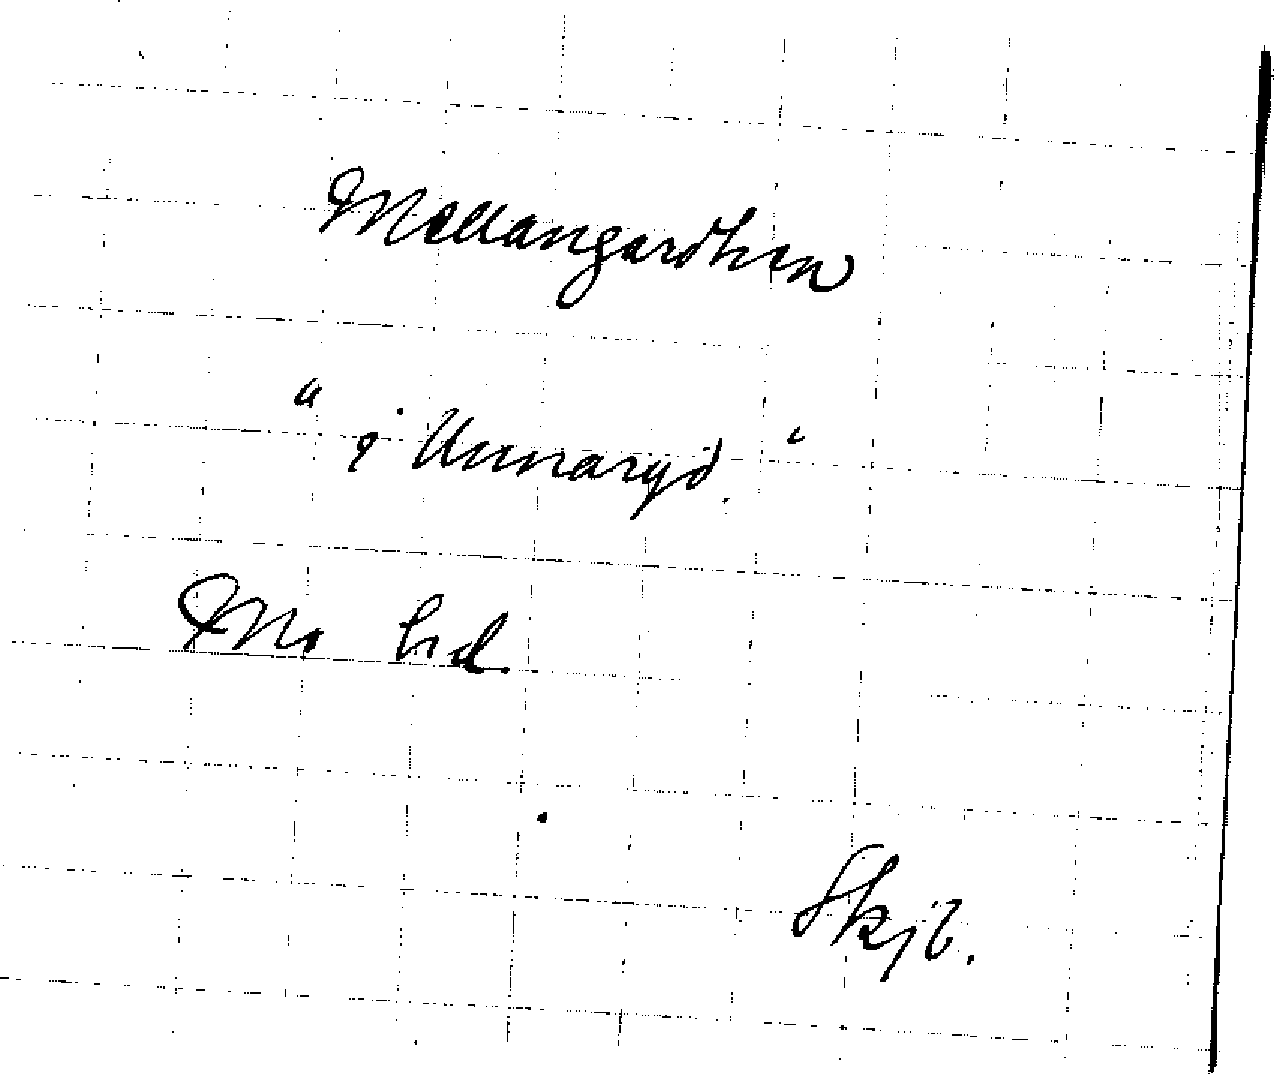 Mellangärdhen
" i Unnaryd. "
Mo hd.
Skjb.